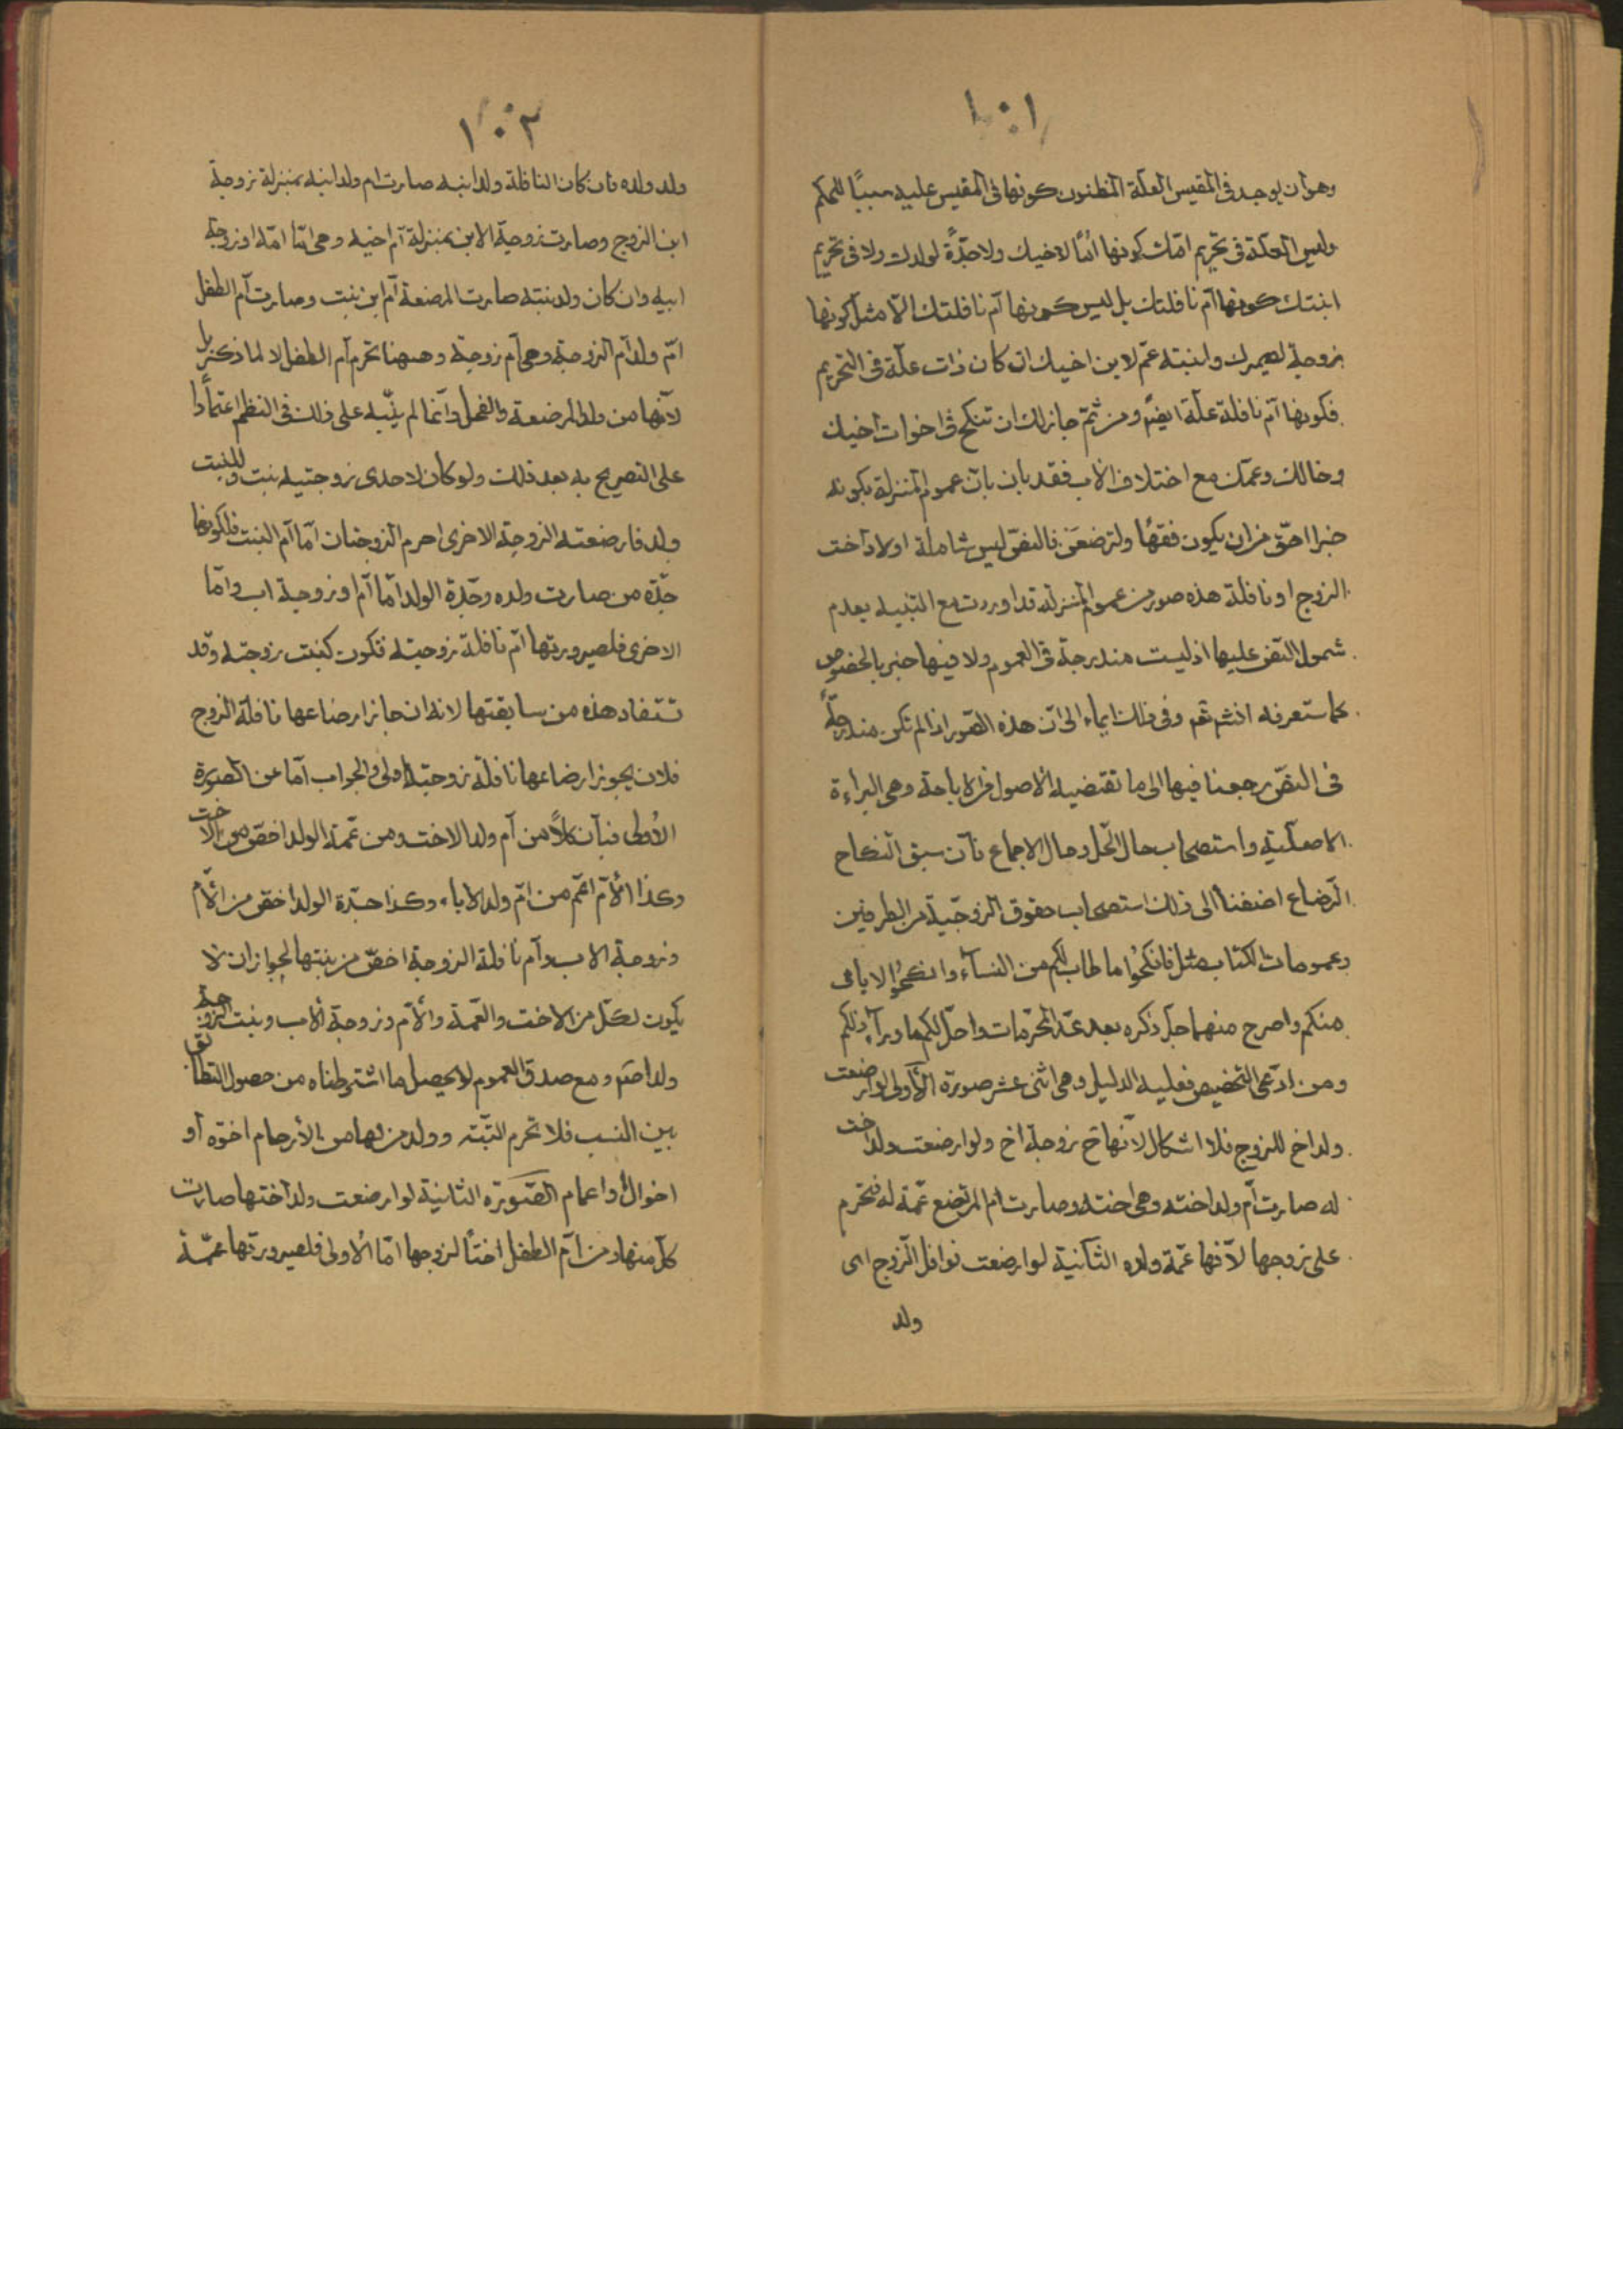 ١٠١
وهو ان يوجد فى المقيس العلة المظنون كونها فى المقيس عليه سببًا للحكم
وليس العلة فى تحريم امّك كونها امًّا لاخيك ولا جدّةً لولدك ولا فى تحريم
ابنتك كونها امّ نافلتك بل ليس كونها امّ نافلتك الّا مثل كونها
زوجة لصهرك ولبنته عم لابن اخيك ان كان ذات علّة فى التحريم
فكونها امّ نافلة علّة ايضًا ومن ثمّ جاز لك ان تنكح فى اخوات اخيك
وخالك وعمّك مع اختلاف الاب فقد بان بان عموم المنزلة بكونه
خبرا احقّ من ان يكون فقهًا ولترضعن فالنصّ ليس شاملة اولاد اخت
الزوج او نافلة هذه صور من عموم المنزلة قد اوردت مع التنبيه بعدم
شمول النصّ عليها اذ ليست مندرجة فى العموم ولا فيها خبر بالخصوص
كما ستعرفه انشم ثم وفى ذلك ايماء الى انّ هذه الصّور اذا لم تكن مندرجةً
فى النصّ رجعنا فيها الى ما تقتضيه الاصول من الاباحة وهى البراءة
الاصليّة واستصحاب حال الحلّ وحال الاجماع فان سبق النكاح
الرّضاع اضفنا الى ذلك استصحاب حقوق الزوجيّة من الطرفين
وعمومات الكتاب مثل فانكحُوا ما طاب لكم من النساۤء وانكحُوا الايامى
منكم واصرح منهما جلّ ذكره بعد عدّ المحرّمات واحلّ لكم ما وراۤء ذلكم
ومن ادّعى التخصيص فعليه الدليل وهى اثنى عشر صورة الأولى لو ارضعت
ولد اخ للزوج فلا اشكال لانّها ح زوجة اخ ولو ارضعت ولد اخت
له صارت امّ ولد اخته وهى اخته وصارت ام المرتضع عمّة له فتحرم
على زوجها لانّها عمّة ولده الثانية لو ارضعت نوافل الزّوج اى
ولد
١٠٢
ولد ولده فان كان النافلة ولد ابنه صارت ام ولد ابنه بمنزلة زوجة
ابن الزوج وصارت زوجة الابن بمنزلة امّ اخيه وهى امّا امّه او زوجة
ابيه وان كان ولد بنته صارت المرضعة امّ ابن بنت وصارت امّ الطفل
امّ ولد امّ الزوجة وهى امّ زوجة وههنا تحرم امّ الطفل لا لما ذكر بل
لانّها من ولد المرضعة والفحل وانّما لم ينبّه على ذلك فى النظم اعتمادًا
على التصريح به بعد ذلك ولو كان لاحدى زوجتيه بنت وللبنت
ولد فارضعته الزوجة الاخرى احرم الزوجتان امّا امّ البنت فلكونها
جدّة من صارت ولده وجدّة الولد امّا امّ او زوجة اب وامّا
الاخرى فلصيرورتها امّ نافلة زوجته فتكون كبنت زوجته وقد
تستفاد هذه من سابقتها لانه ان جاز ارضاعها نافلة الزوج
فلان يجوز ارضاعها نافلة زوجته اولى والجواب امّا عن الصورة
الاولى فبان كلّاً من امّ ولد الاخت ومن عمّة الولد اخصّ من الاخت
وكذا الأمّ اعمّ من امّ ولد الاباء وكذا جدّة الولد اخصّ من الامّ
وزوجة الاب وامّ نافلة الزوجة اخصّ من بنتها لجواز ان لا
يكون لكلّ من الاخت والعمّة والأمّ وزوجة الأب وبنت الزوجة
ولد اصم ومع صدق العموم لا يحصل ما اشترطناه من حصول التطابق
بين النسب فلا تحرم البتّة وولد من لها من الأرحام اخوّه أو
اخوالٌ واعمام الصّورة الثانية لو ارضعت ولد اختها صارت
كلّ منها ومن امّ الطفل اختًا لزوجها امّا الاولى فلصيرورتها عمّة